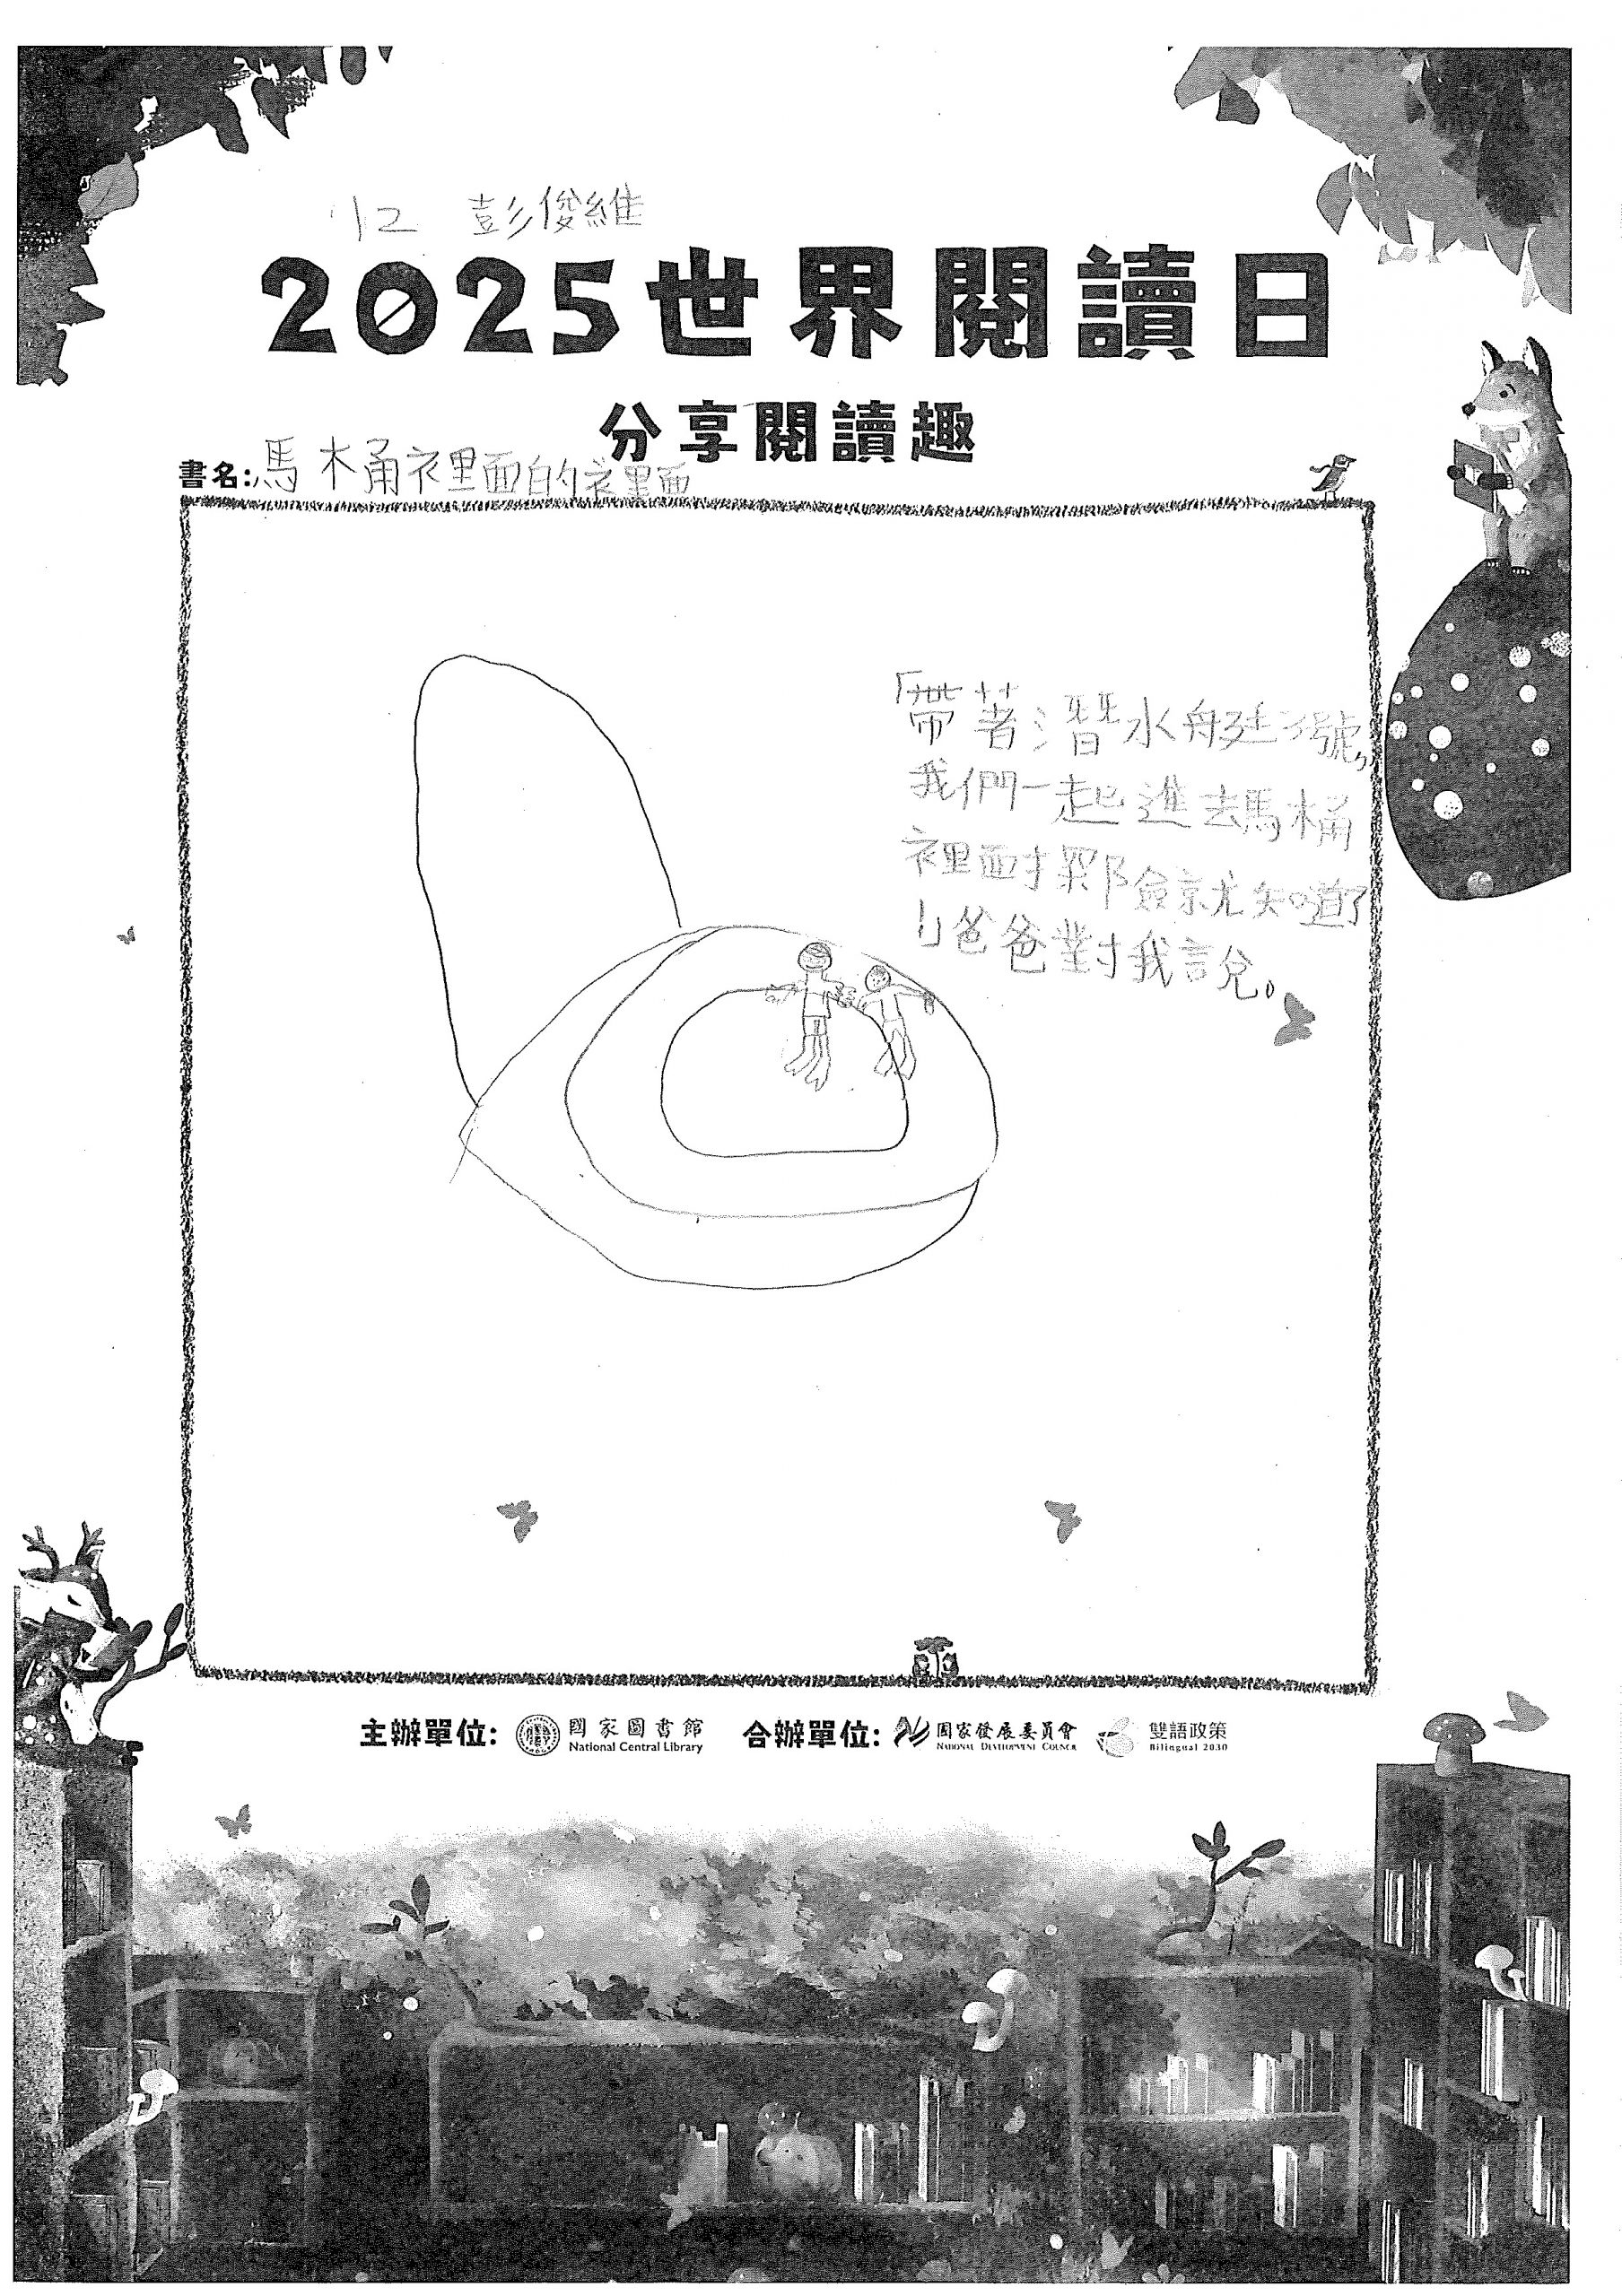 12 彭俊維
2025世界閱讀日
分享閱讀趣
書名:馬桶裡面的裡面
「帶著潛水艇3號,
我們一起進去馬桶
裡面探險就知道了
!」爸爸對我說。
主辦單位: 國家圖書館 National Central Library 合辦單位: 國家發展委員會 National Development Council 雙語政策 Bilingual 2030